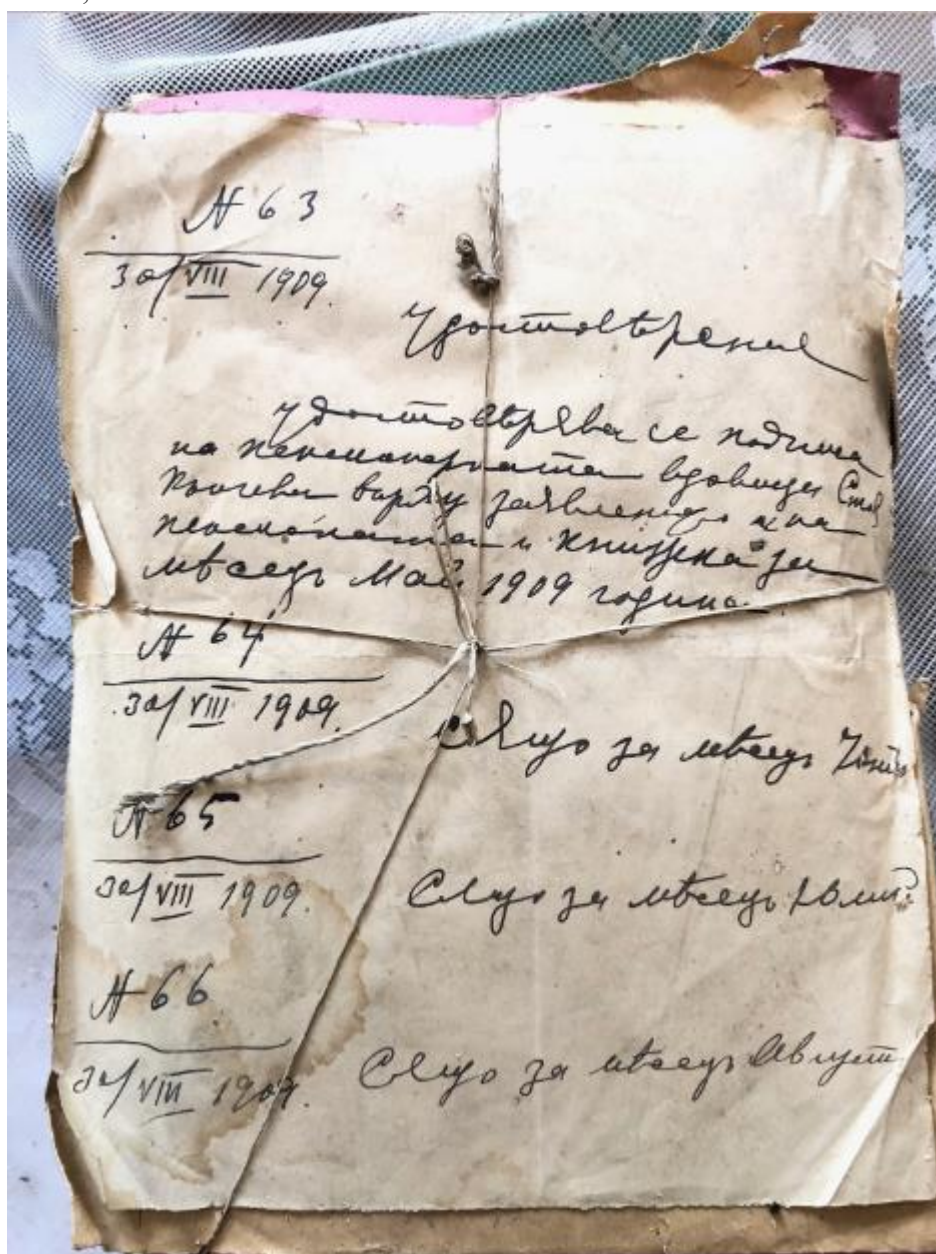 N 63
30/VIII 1909.
Удостовѣрения
Удостовѣрява се подписа
на пенсионерката вдовица
върху заявлението ѝ на
и книжка за
мѣсецъ Май 1909 година.
N 64
30/VIII 1909.
Сѫщо за мѣсецъ
N 65
30/VIII 1909.
Сѫщо за мѣсецъ Юлий
N 66
30/VIII 1909.
Сѫщо за мѣсецъ Августъ